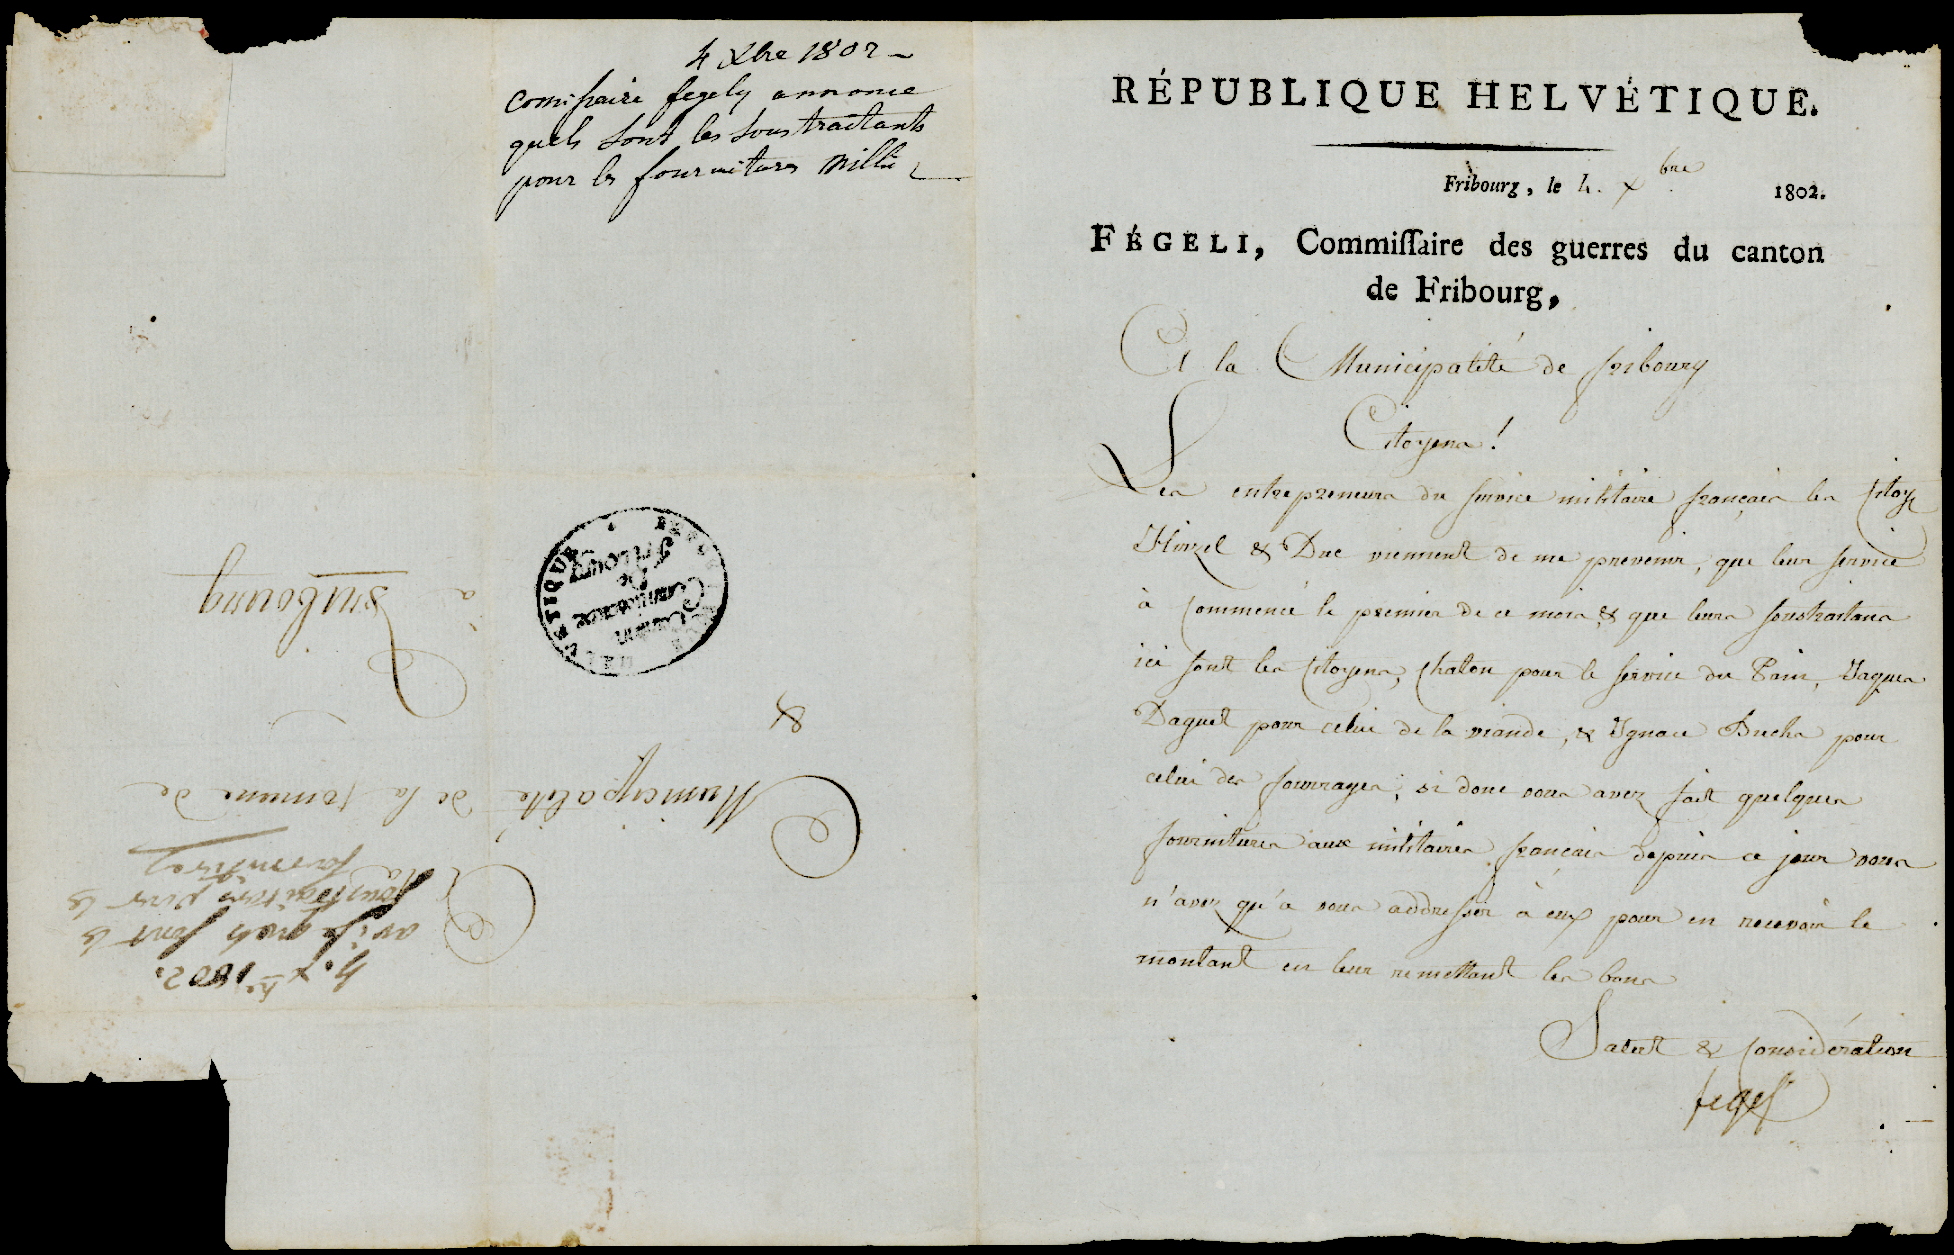 4 Xbre 1802 –
Comissaire fegely annonce
quels sont les soustraitants
pour les fournitures
RÉPUBLIQUE HELVÉTIQUE.
Fribourg, le 4. Xbre 1802.
FÉGELI, Commiſſaire des guerres du canton
de Fribourg,
A la Municipalité de fribourg
Citoyens!
Les entrepreneurs du service militaire français les Citoy
Hirzel & Duc viennent de me prevenir, que leur service
à commencé le premier de ce mois & que leurs soustraitans
ici sont les Citoyens, Chaton pour le service du Pain, Jaques
Daguet pour celui de la viande, & Ignace Buchs pour
celui des fourrages; si donc vous avez fait quelques
fournitures aux militaires français depuis ce jour vous
n'avez qu'a vous addresser à eux pour en recevoir le
montant en leur remettant les bons
Salut & Considération
fegeli
HELVÉTIQUE
De
Fribourg
A la
Municipalité de la Commune de
&
à Fribourg
4. Xbre 1802.
avis quels sont les
soustraitans pour les
fournitures